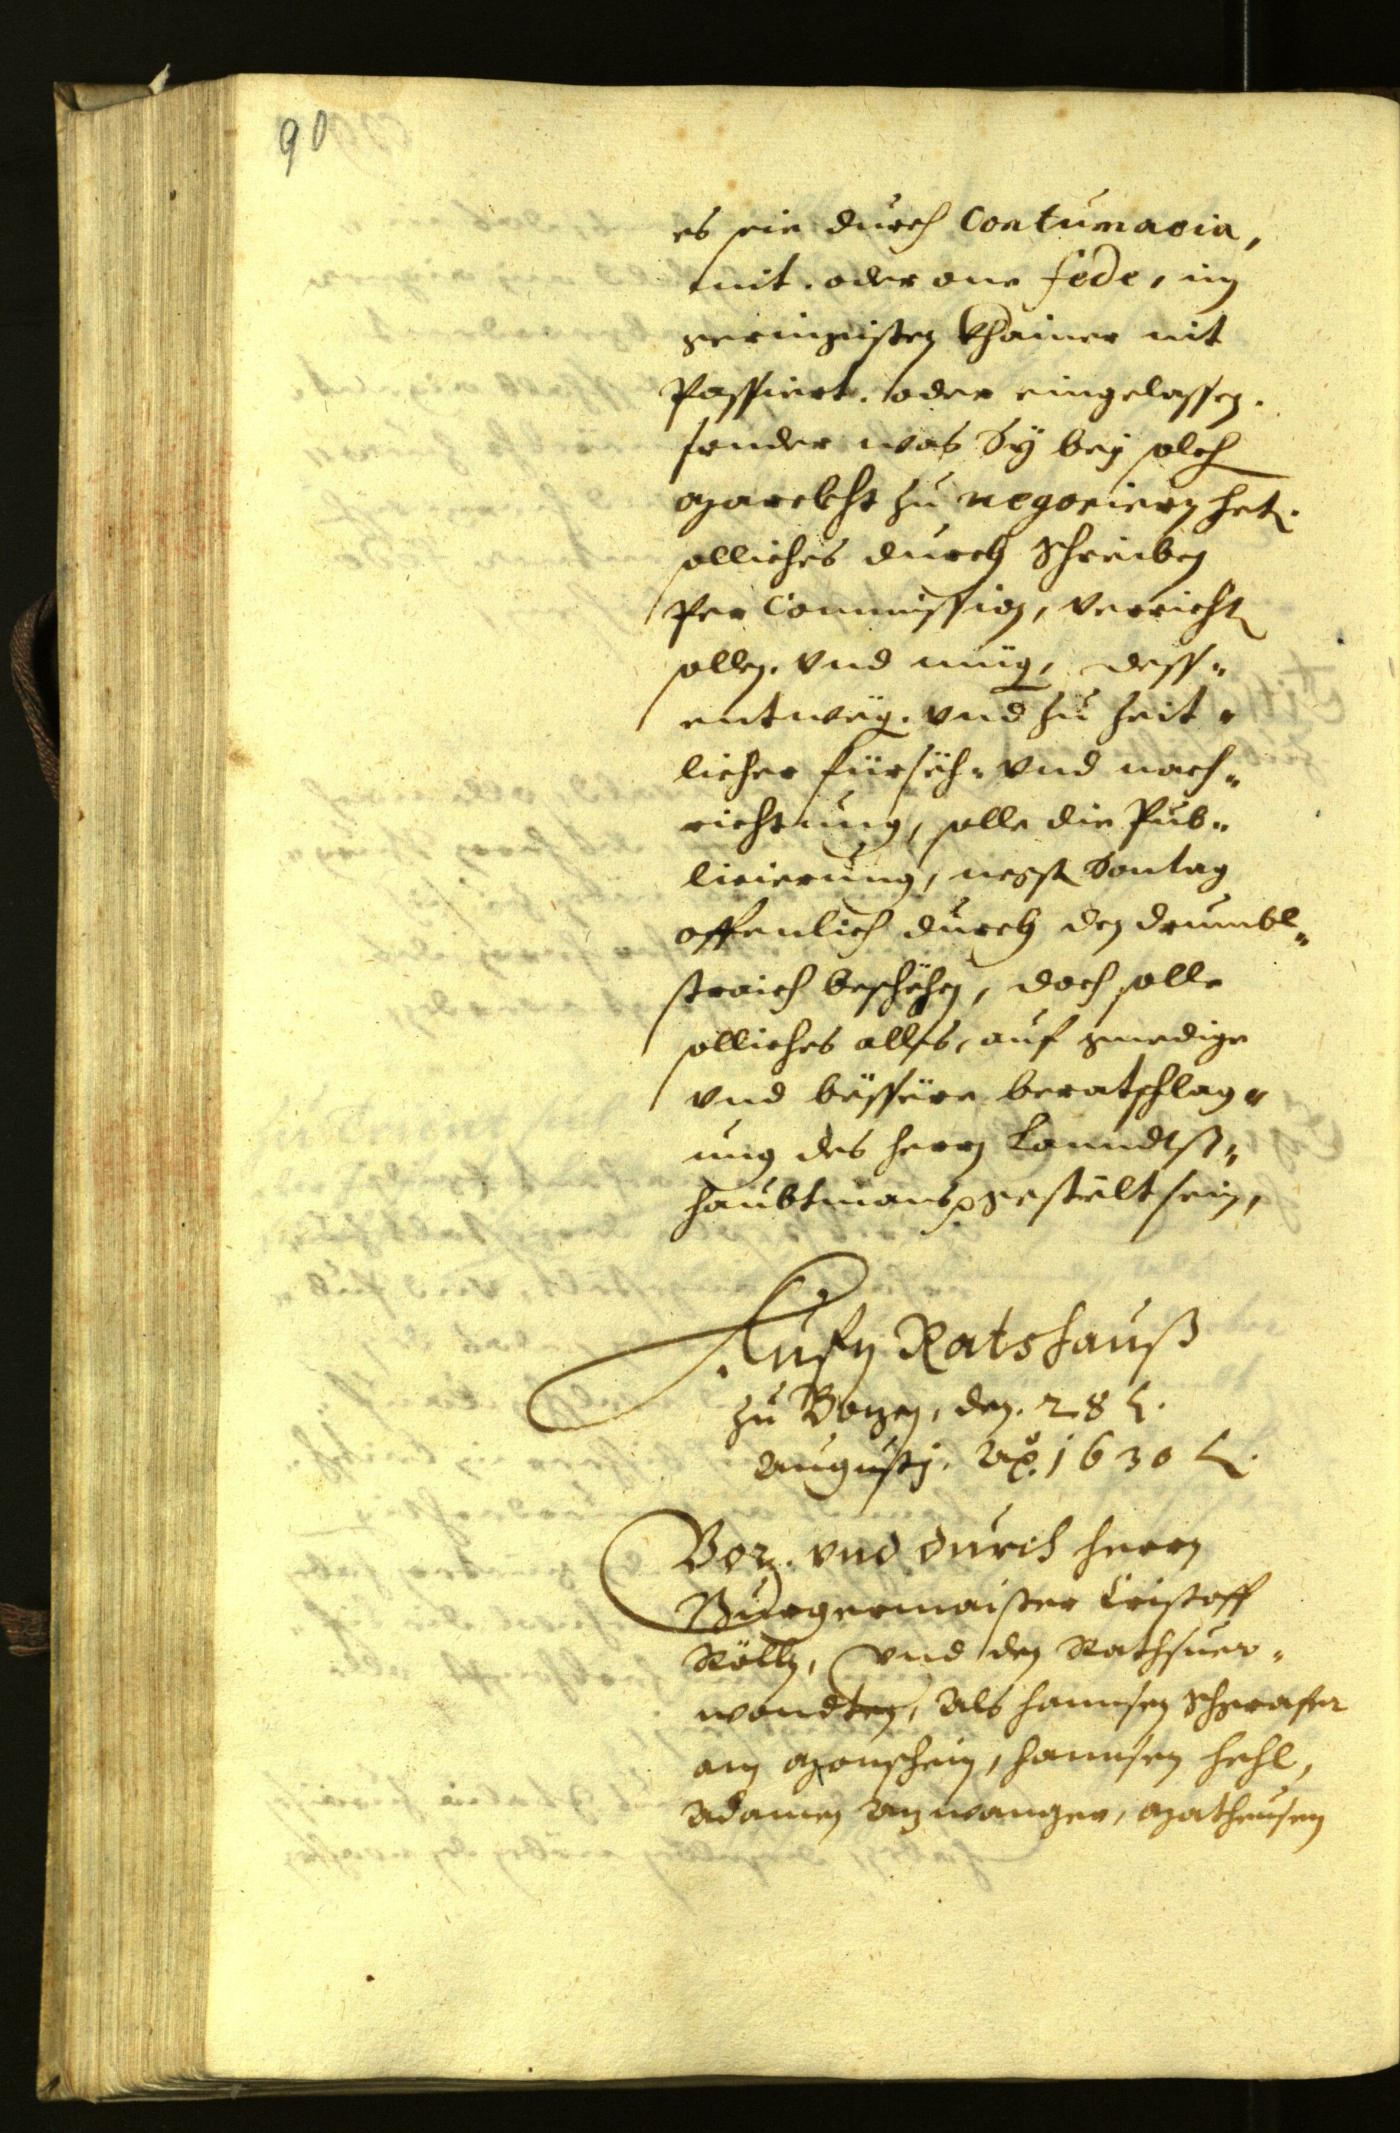 90
es seie durch Contumacia,
mit. oder one fede, im
geringisten khainer nit
Passiert. oder eingelassen.
sonder was Sÿ beÿ solch
Marckht zu negociern het.
solliches durch Schreiben
Per Commission, verricht
sollen. vnd müg, dess¬
entweg. vnd zu zeit¬
licher fürseh- vnd nach¬
richtung, solle die Pub¬
licierung, negst Sontag
offenlich durch den drumbl¬
straich beschehen, doch solle
solliches alles, auf gnedige
vnd bessere beratschlag¬
ung des herrn Lanndts¬
haubtmans gestelt sein,
Aufm Ratshauß
zu Bozen, den. 28 t.
Augustj. Ao. 1630 t.
Vor. vnd durch herrn
Burgermaister Cristoff
Röll, vnd den Rathsuer¬
wondten, Als hannsen
am Monschein, hannsen hehl,
Adamen Anwanger, Matheusen